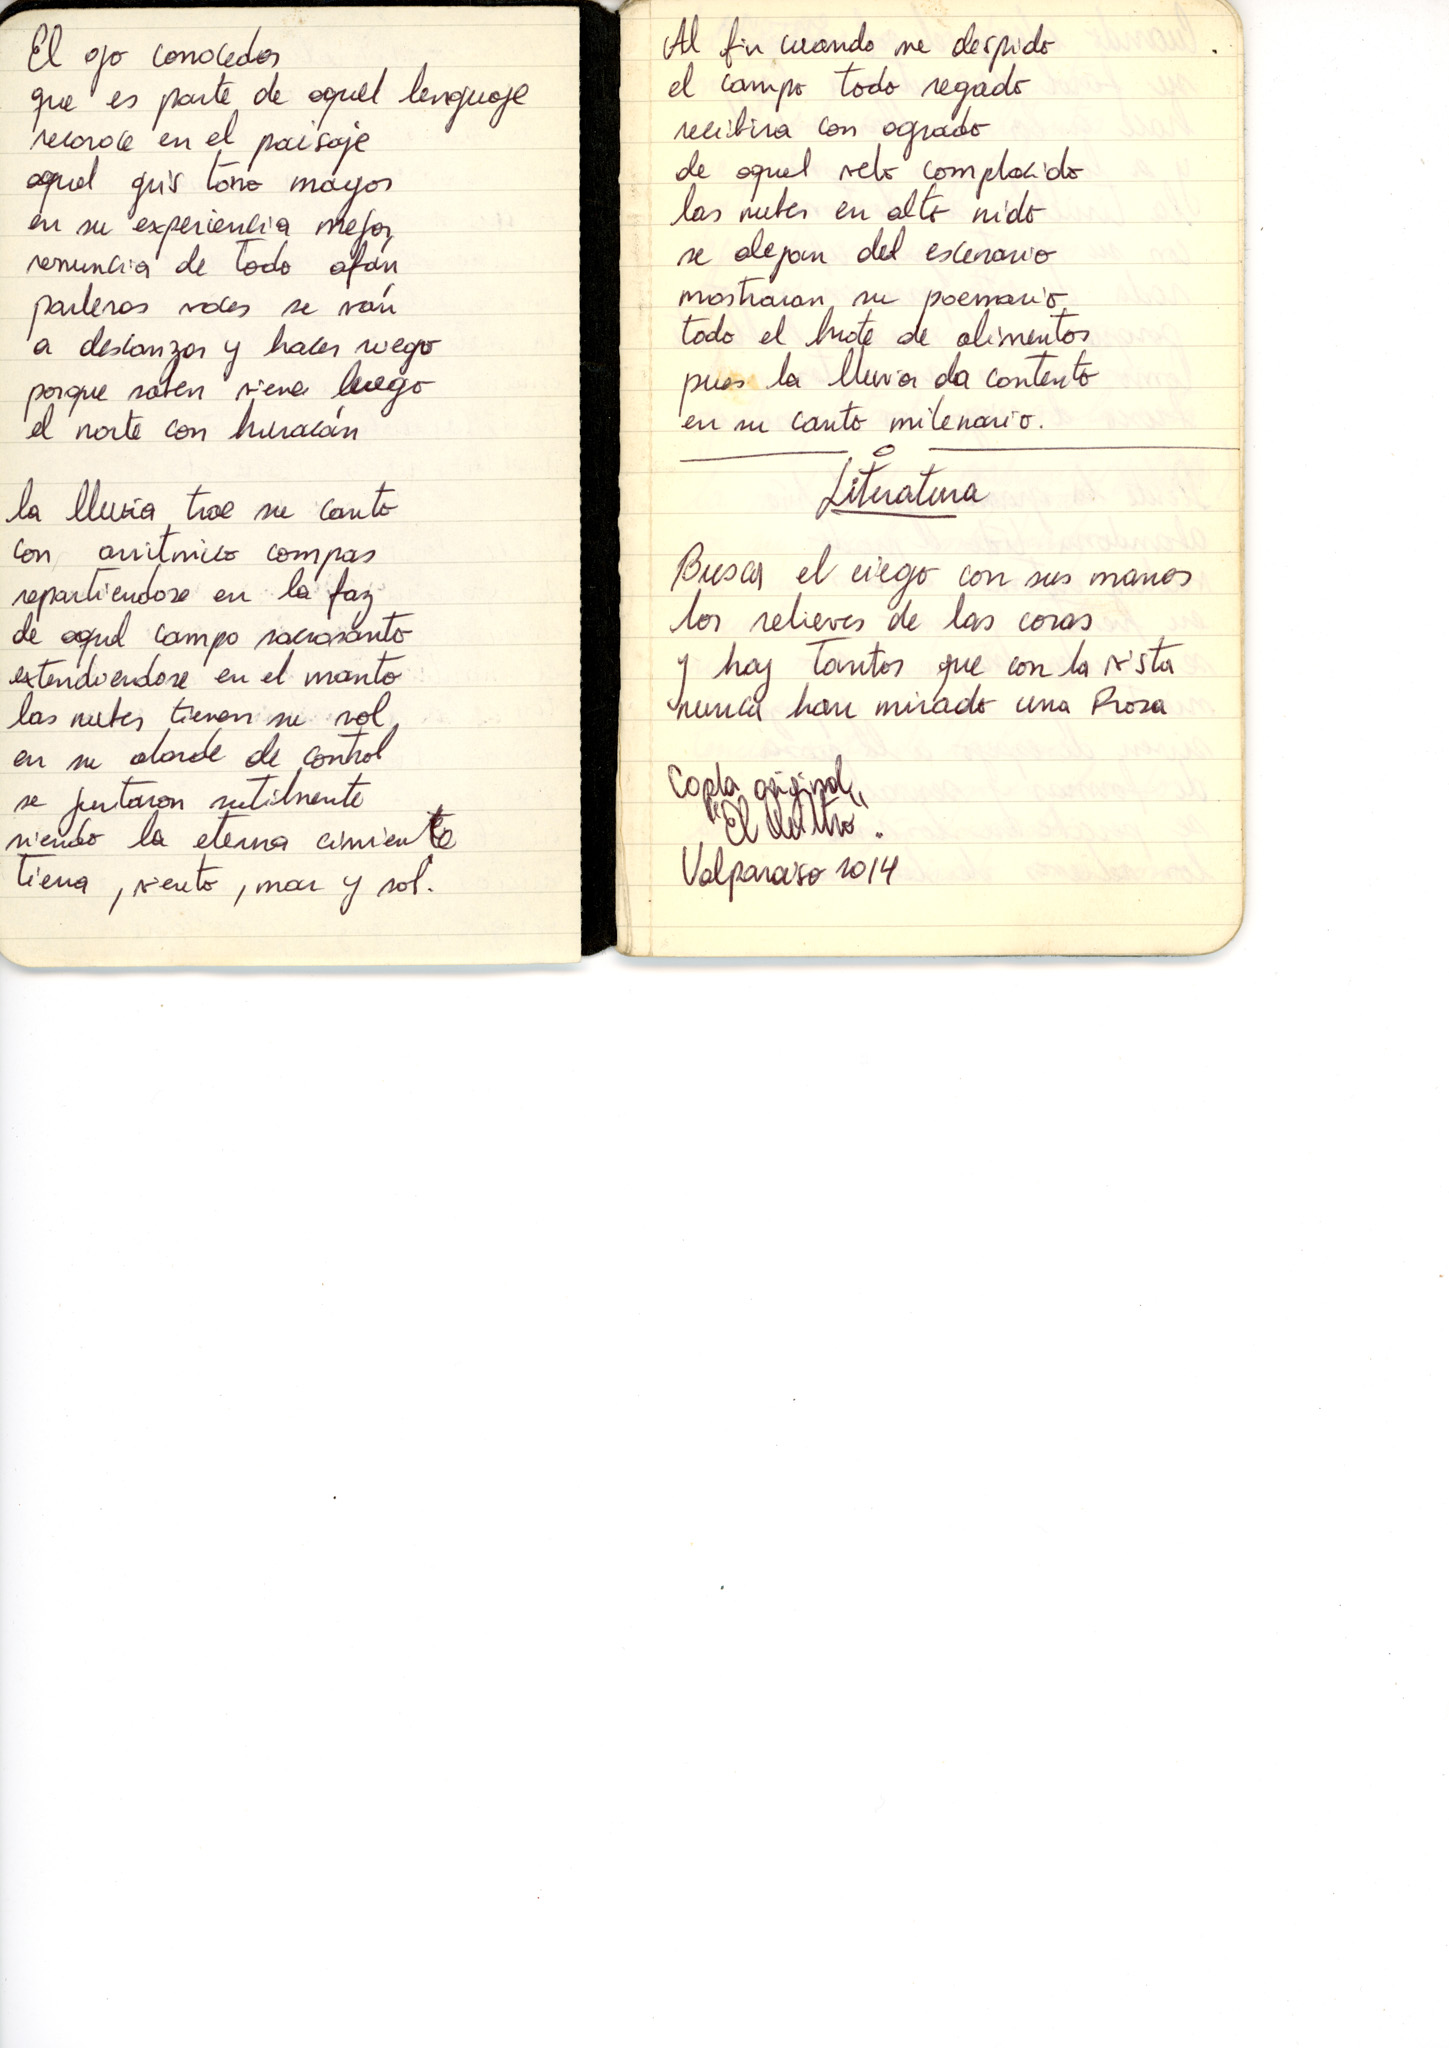 El ojo conocedor
que es parte de aquel lenguaje
reconoce en el paisaje
aquel gris tono mayor
en su experiencia mejor
renuncia de todo afán
parleras voces se ván
a descanzar y hacer ruego
porque saben viene luego
el norte con huracán
la lluvia trae su canto
con arritmico compas
repartiendose en la faz
de aquel campo sacrosanto
extendiendose en el manto
las nubes tienen su rol
en su alarde de control
se juntaron sutilmente
siendo la eterna cimiente
tierra, viento, mar y sol.
Al fin cuando se despido
el campo todo regado
recibira con agrado
de aquel velo complacido
las nubes en alto nido
se alejan del escenario
mostraran su poemario
todo el brote de alimentos
pues la lluvia da contento
en su canto milenario.
Literatura
Busca el ciego con sus manos
los relieves de las cosas
y hay tantos que con la vista
nunca han mirado una Prosa
Copla original
"El
Valparaiso 2014